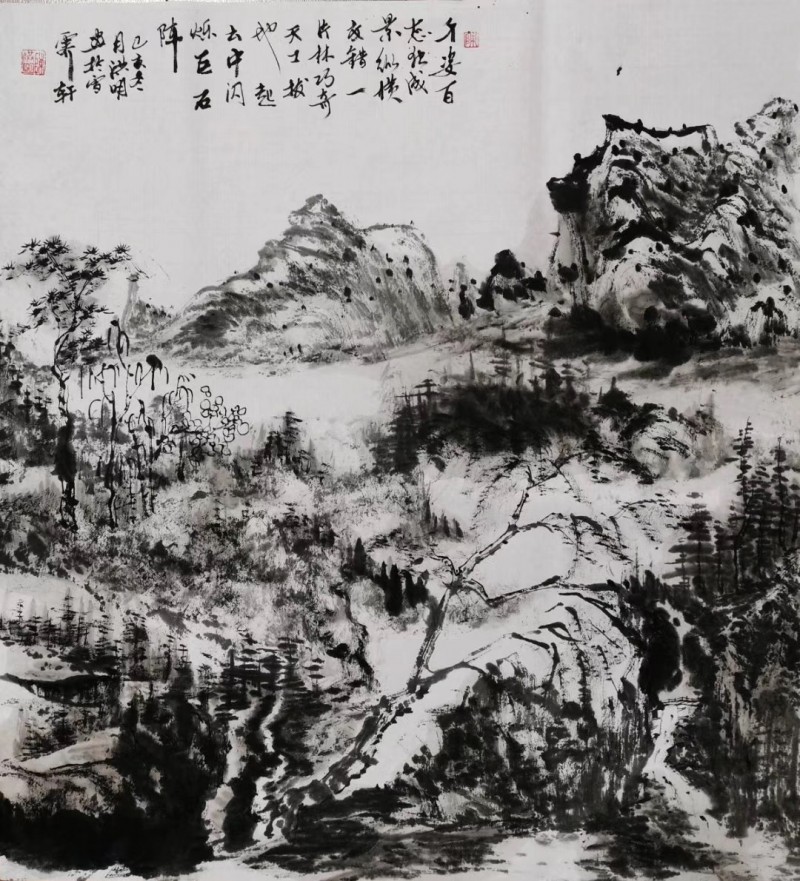 千姿百
态独成
景纵横
交错一
片林巧夺
天工拔
地起
云中闪
烁巨石
阵
己亥冬
月洪明
画於雪
霁轩